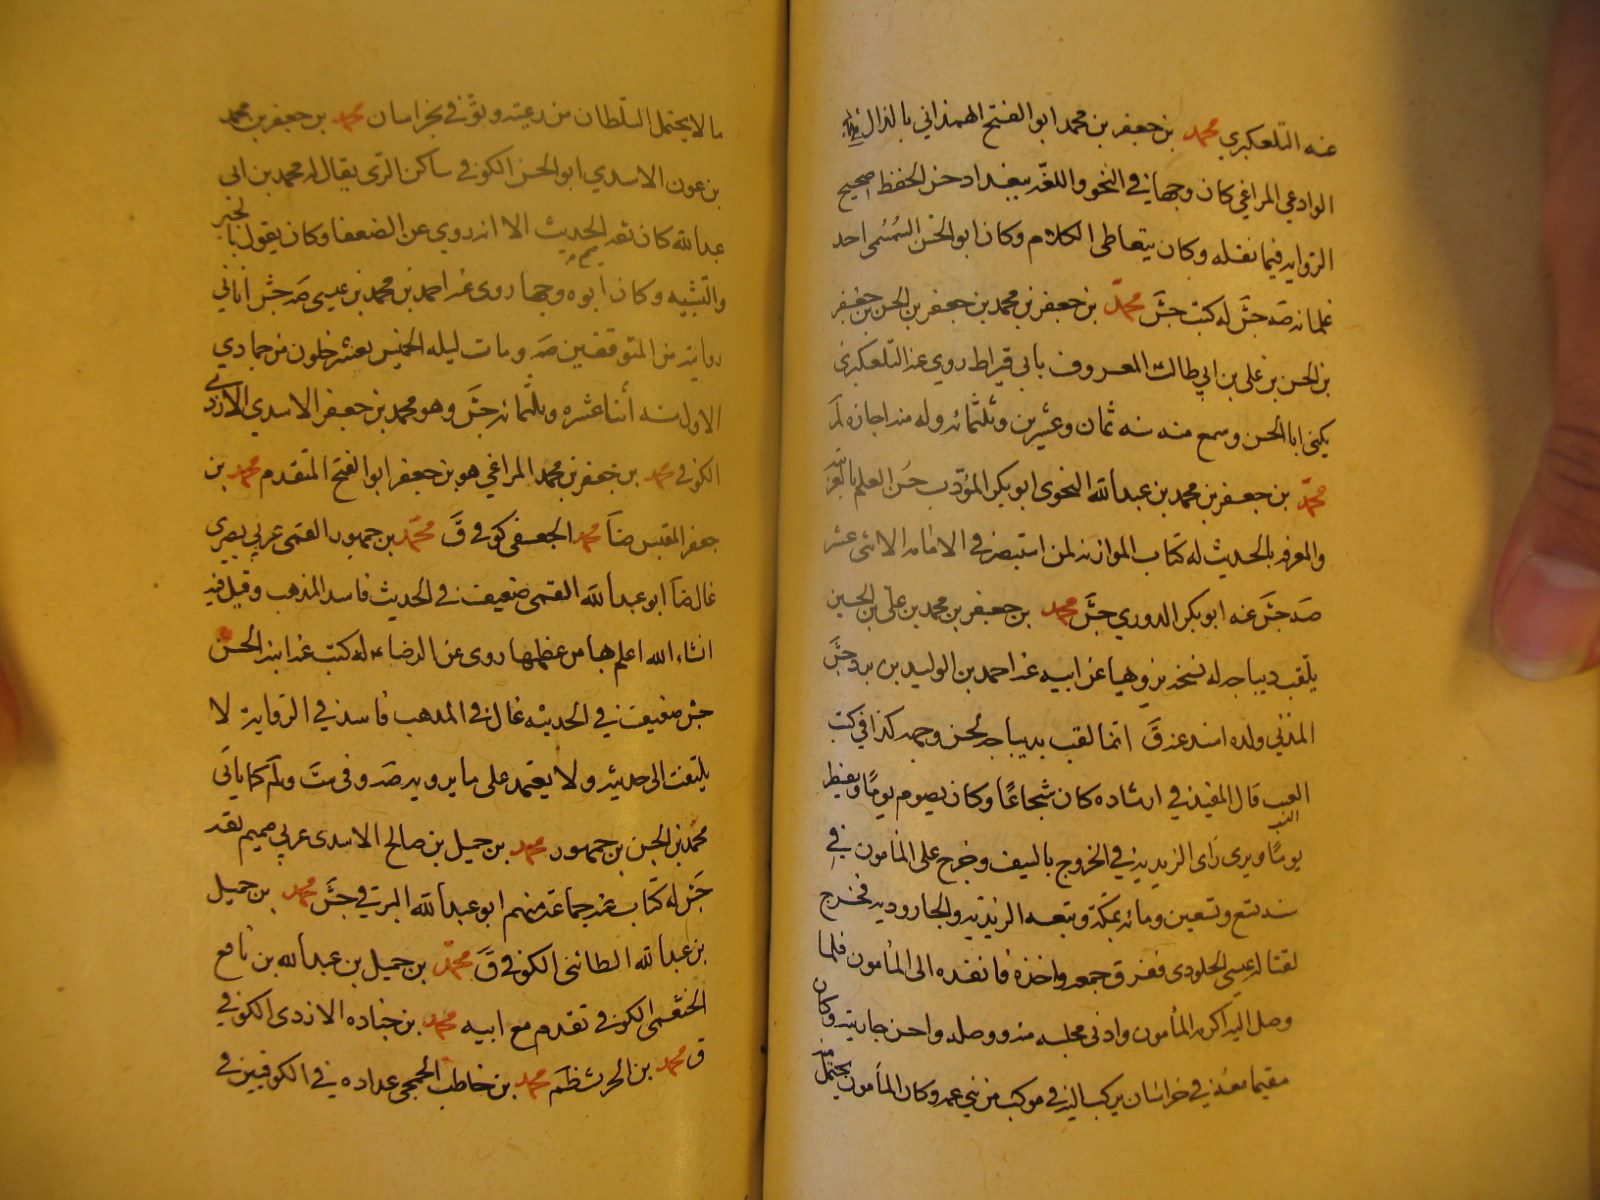 عنه التلعكبري محمد بن جعفر بن محمد ابو الفتح الهمذاني بالذال
الوادعي المراغي كان وجها في النحو واللغة ببغداد حسن الحفظ صحيح
الرواية فيما نقله وكان يتعاطى الكلام وكان ابو الحسن السمسمي احد
غلمانه صه جش له كتب جش محمد بن جعفر بن محمد بن جعفر بن الحسن بن جعفر
بن الحسن بن علي بن ابي طالب المعروف بابي قيراط روى عنه التلعكبري
يكنى ابا الحسن وسمع منه سنه ثمان وعشرين وثلثمائة وله منه اجازه لم
محمد بن جعفر بن محمد بن عبدالله النحوي ابو بكر المؤدب حسن العلم بالعربية
والمعرفه بالحديث له كتاب الموازنه لمن استبصر في الامامه الاثنى عشر
صه جش عنه ابو بكر الدوري جش محمد بن جعفر بن محمد بن علي بن الحسين
يلقب ديباجه له نسخه يرويها عن ابيه عنه احمد بن الوليد بن برد جش
المدني ولده اسند عنه ق انما لقب بديباجه لحسن وجهه كذا في كتب
النسب قال المفيد في ارشاده كان شجاعا وكان يصوم يوما ويفطر
يوما ويرى راى الزيدية في الخروج بالسيف وخرج على المأمون في
سنه تسع وتسعين ومائه بمكة وتبعه الزيدية والجارودية فخرج
لقتاله عيسى الجلودي ففرق جمعه واخذه فانفذه الى المأمون فلما
وصل اليه اكرمه المأمون وادنى مجلسه منه ووصله واحسن جايزته وكان
مقيما معه في خراسان يركب اليه في موكب من بني عمه وكان المأمون يحتمل منه
ما لا يحتمل السلطان من رعيته وتوفى بخراسان محمد بن جعفر بن محمد
بن عون الاسدي ابو الحسن الكوفي ساكن الري يقال له محمد بن ابي
عبدالله كان ثقه صحيح الحديث الا انه روى عن الضعفا وكان يقول بالجبر
والتشبيه وكان ابوه وجها روى عنه احمد بن محمد بن عيسى صه جش انا في
روايته من المتوقفين صه ومات ليله الخميس لعشر خلون من جمادي
الاول سنه أثنا عشره وثلثمائه جش وهو محمد بن جعفر الاسدي الرازي
الكوفي محمد بن جعفر بن محمد المراغي هو بن جعفر ابو الفتح المتقدم محمد بن
جعفر المقبس ضا محمد الجعفي كوفي ق محمد بن جمهور القمي عربي بصري
غال ضا ابو عبدالله القمي ضعيف في الحديث فاسد المذهب وقيل فيه
اشياء الله اعلم بها من عظمها روى عن الرضا ع له كتب عنه ابنه الحسن
جش ضعيف في الحديث غال في المذهب فاسد في الرواية لا
يلتفت الى حديثه ولا يعتمد على ما يرويه صه وفي ست ولم كما ياتي
محمد بن الحسن بن جمهور محمد بن جميل بن صالح الاسدي عربي صميم ثقه
جش له كتاب عنه جماعة منهم ابو عبدالله البرقي جش محمد بن جميل
بن عبدالله الطائي الكوفي ق محمد بن جميل بن عبدالله بن نافع
الخثعمي الكوفي تقدم مع ابيه محمد بن جناده الازدي الكوفي
ق محمد بن الحر محمد بن حاطب الجمحي عداده في الكوفيين في